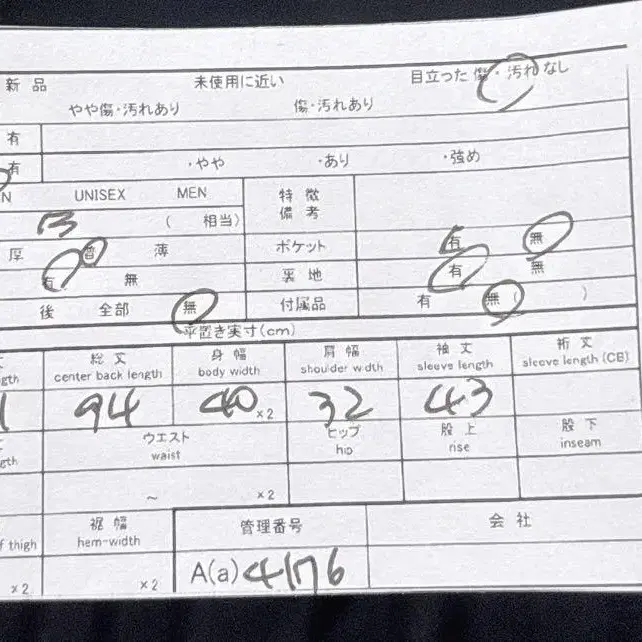 新品 未使用に近い 目立った傷・汚れなし
やや傷・汚れあり 傷・汚れあり
有
有 ・やや ・あり ・強め
N UNISEX MEN 特徴
備考
( 相当)
厚 普 薄 ポケット 有 無
有 無 裏地 有 無
後 全部 無 付属品 有 無( )
平置き実寸(cm)
丈 総丈 身幅 肩幅 袖丈 裄丈
gth center back length body width shoulder width sleeve length sleeve length (CB)
1 94 40 ×2 32 43
ウエスト ヒップ 股上 股下
gth waist hip rise inseam
~ ×2
裾幅 管理番号 会社
f thigh hem-width
×2 ×2 A(a)4176